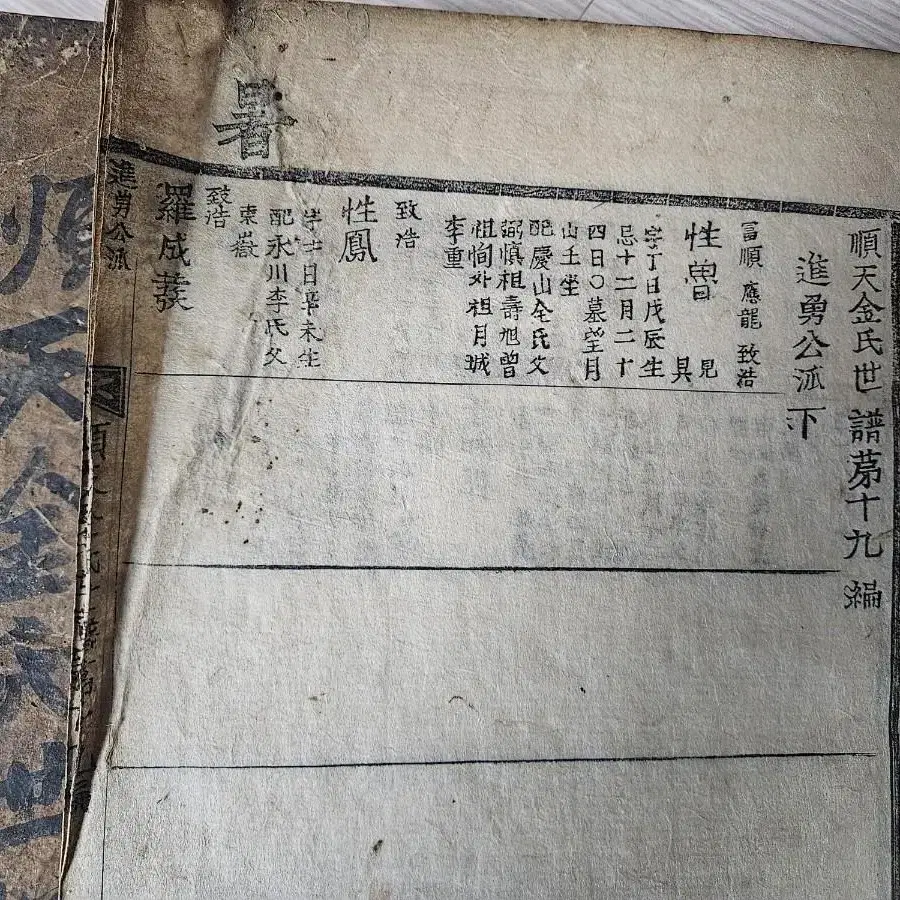 順天金氏世譜苐十九編
進勇公派下
冨順 應龍 致浩
性魯 見具
字丁日戊辰生
忌十二月二十
四日〇墓望月
山壬坐
配慶山全氏父
弼慎祖壽旭曾
祖恂外祖月城
李重
致浩
性鳳
字士日辛未生
配永川李氏父
東嶽
致浩
羅成發
進勇公派
暑
順天金氏世